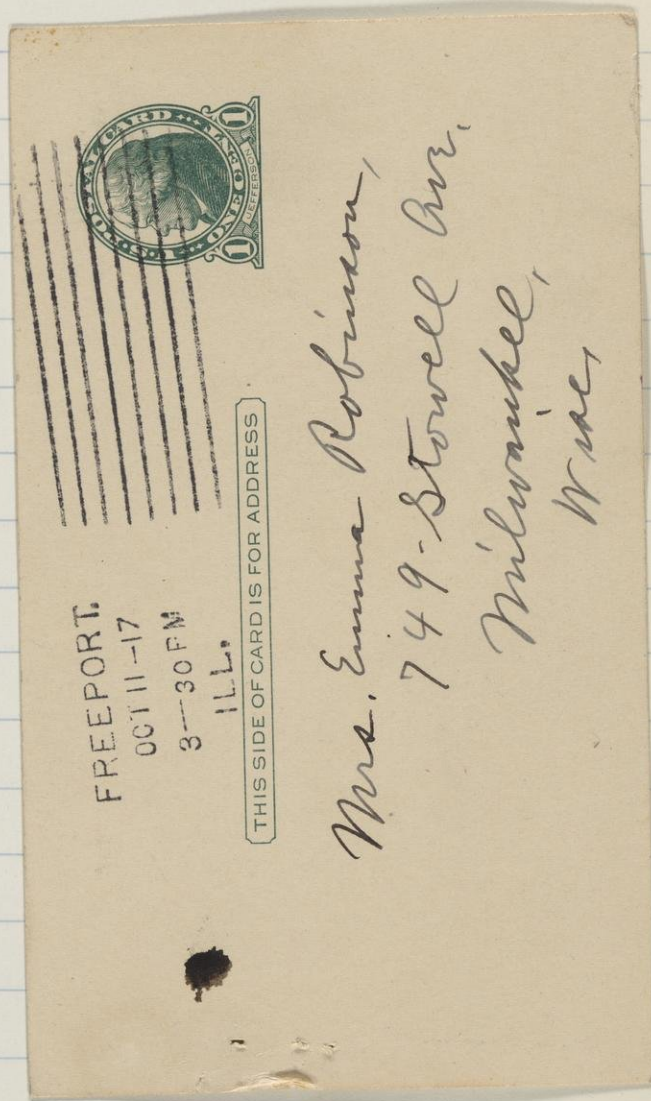 FREEPORT.
OCT 11-17
3-30PM
ILL.
U.S. POSTAL CARD ONE CENT
1 JEFFERSON 1
THIS SIDE OF CARD IS FOR ADDRESS
Mrs. Emma Robinson,
749-Stowell Ave.
Milwaukee,
Wisc,